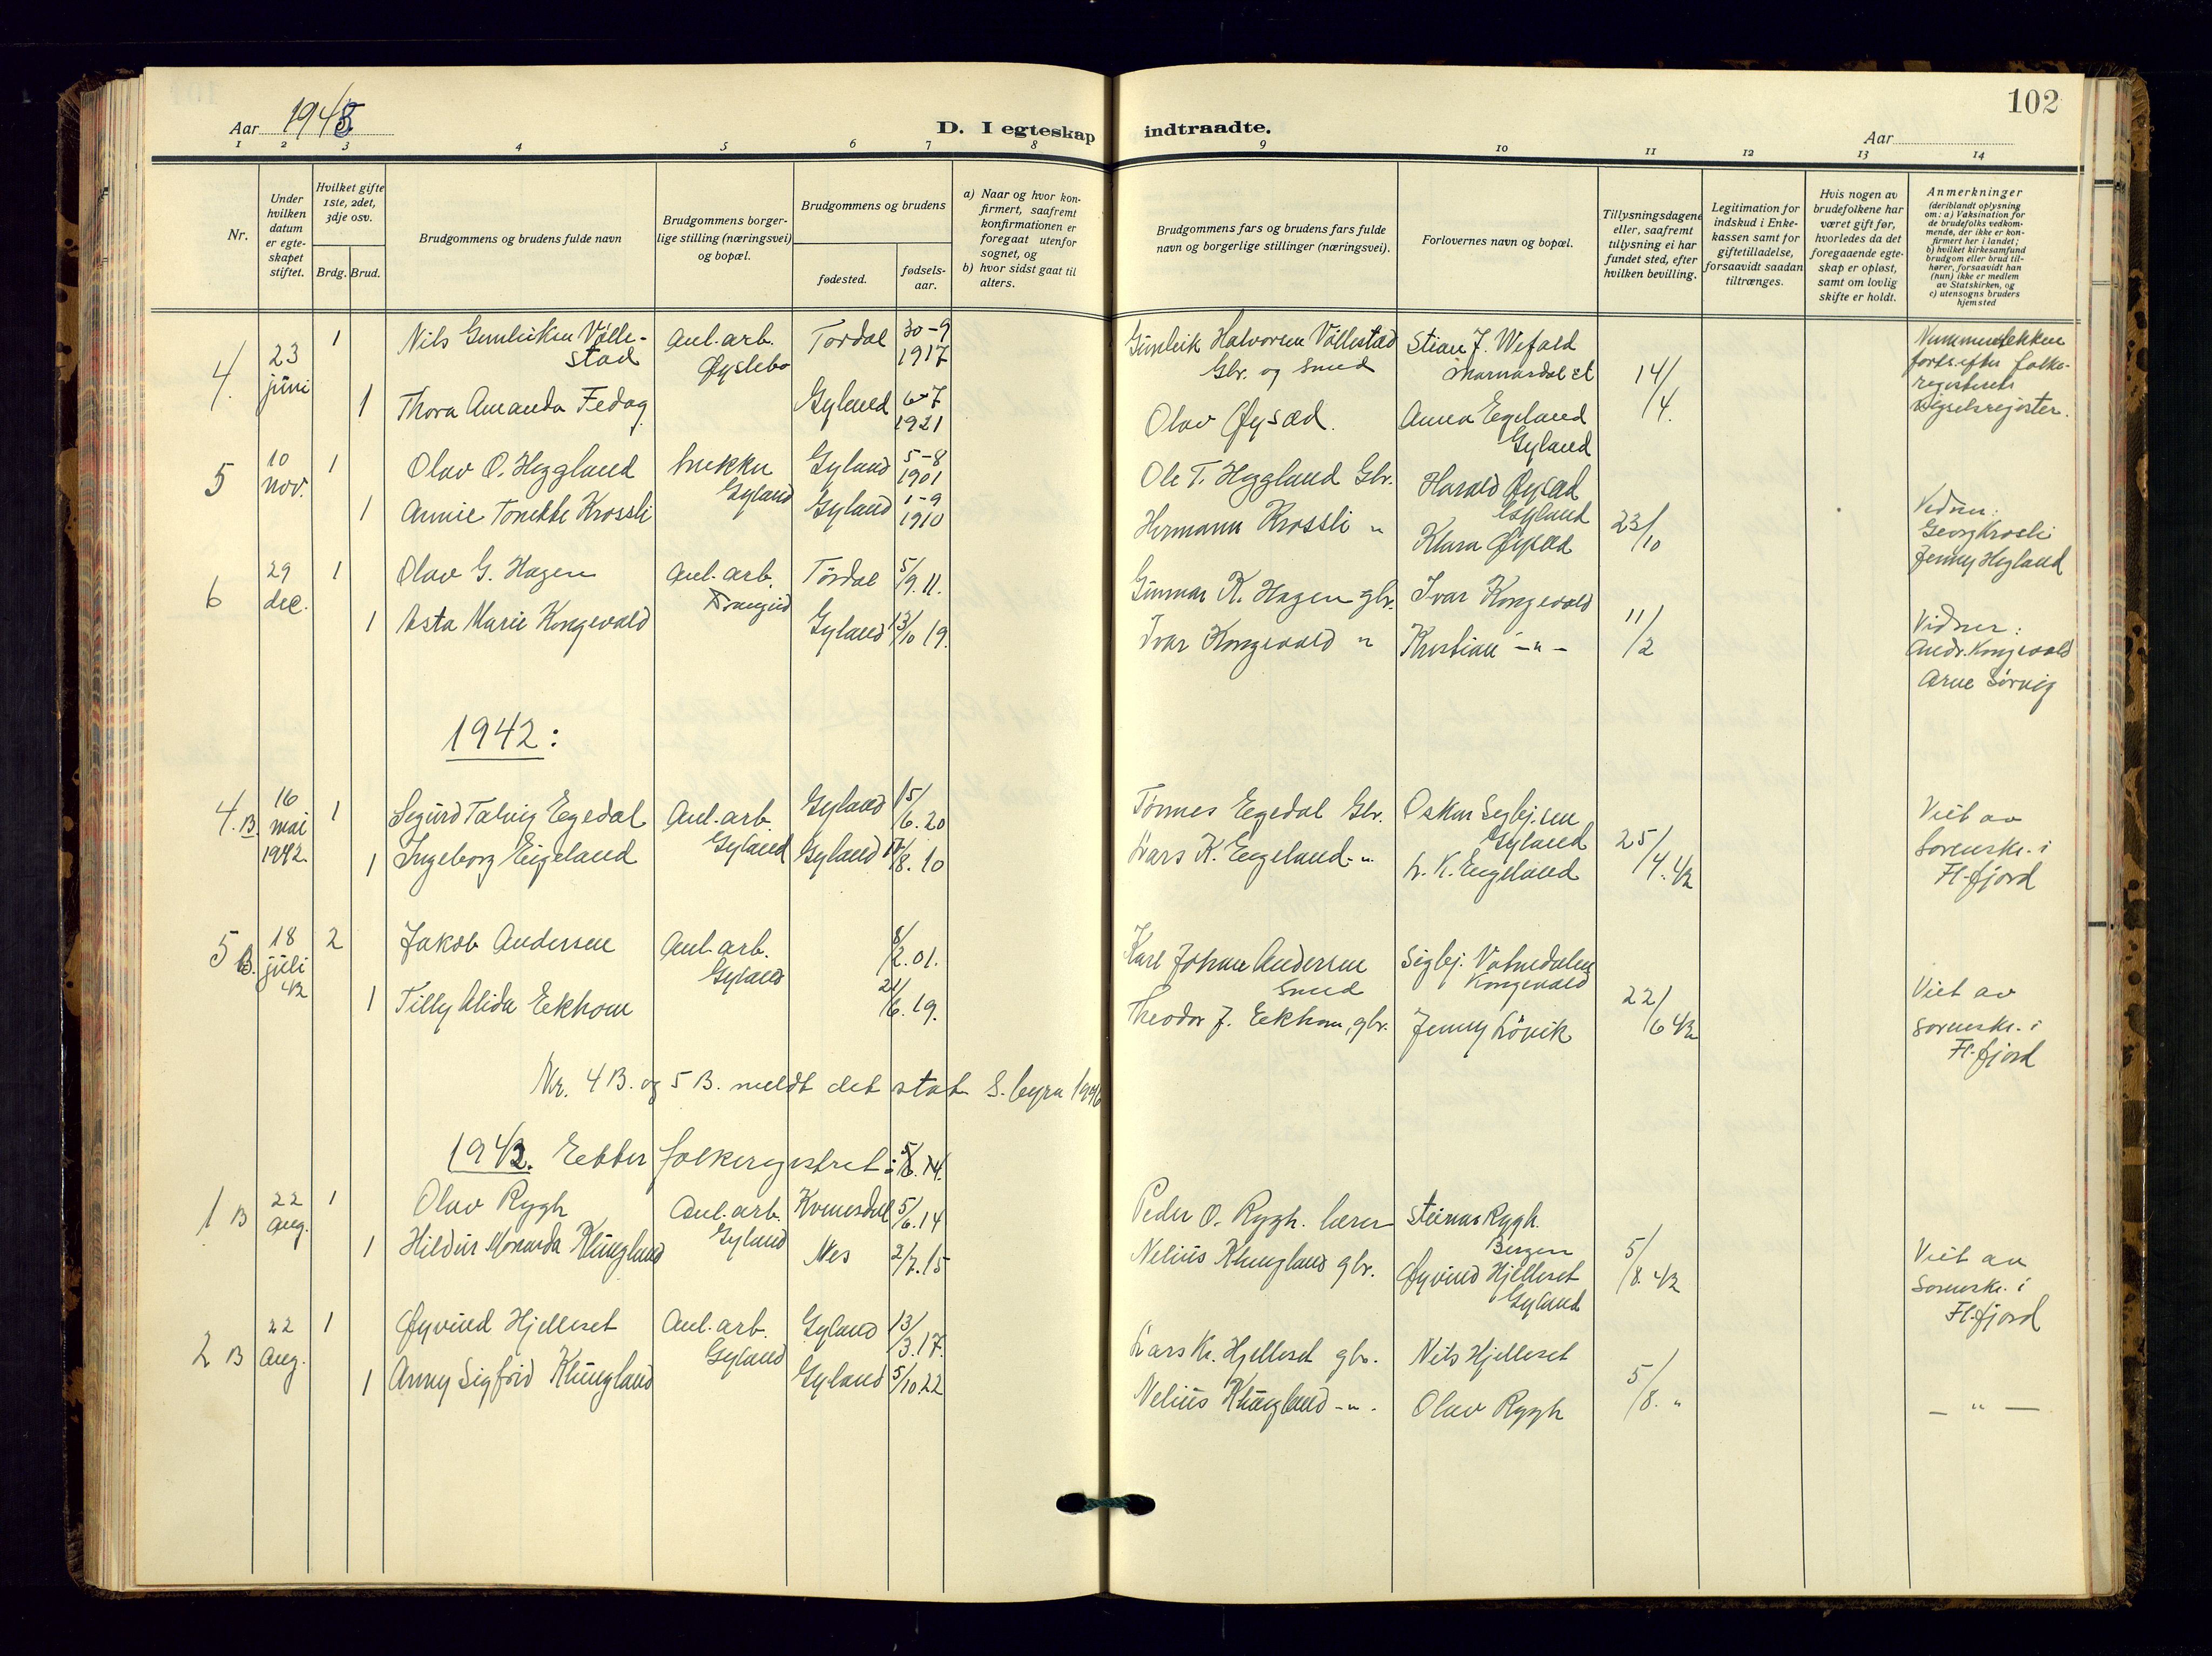 Aar 1945
D. I egteskap indtraadte.
102
Aar
1 2 3 4 5 6 7 8 9 10 11 12 13 14
Nr.
Under hvilken datum er egteskapet stiftet.
Hvilket gifte 1ste, 2det, 3dje osv.
Brdg. Brud.
Brudgommens og brudens fulde navn
Brudgommens borgerlige stilling (næringsvei) og bopæl.
Brudgommens og brudens
fødested.
fødselsaar.
a) Naar og hvor konfirmert, saafremt konfirmationen er foregaat utenfor sognet, og
b) hvor sidst gaat til alters.
Brudgommens fars og brudens fars fulde navn og borgerlige stillinger (næringsvei).
Forlovernes navn og bopæl.
Tillysningsdagene eller, saafremt tillysning ei har fundet sted, efter hvilken bevilling.
Legitimation for indskud i Enkekassen samt for giftetilladelse, forsaavidt saadan tiltrænges.
Hvis nogen av brudefolkene har været gift før, hvorledes da det foregaaende egteskap er opløst, samt om lovlig skifte er holdt.
Anmerkninger (deriblandt oplysning om: a) Vaksination for de brudefolks vedkommende, der ikke er konfirmert her i landet; b) hvilket kirkesamfund brudgom eller brud tilhører, forsaavidt han (hun) ikke er medlem av Statskirken, og c) utensogns bruders hjemsted
4. 23 juni 1 Nils Gunleiksen Vållestad Anl. arb. Øyslebø Tordal 30-9 1917 Gunleik Halvorsen Vållestad Gbr. og Smed Stian J. Wefald Marnardal st 14/4. Nummerrekken forts. efter folkeregisterets vigselsregister.
1 Thora Amanda Fedog Gyland 6-7 1921 Olav Øysæd. Anna Egeland Gyland
5 10 nov. 1 Olav O. Heggland Snekker Gyland Gyland 5-8 1901 Ole T. Heggland Gbr. Harald Øysæd Gyland 23/10 Vidner: Georg Krosli Jenny Hegland
1 Annie Tonette Krossli Gyland 1-9 1910 Hermann Krossli " Klara Øysæd
6 29 dec. 1 Olav G. Hagen Anl. arb. Drangeid Tördal 5/9.11. Gunnar K. Hagen gbr. Ivar Kongevold 11/2 Vidner: Andr. Kongevold Arne Sørvig
1 Asta Marie Kongevold Gyland 13/10 19. Ivar Kongevold " Kristian -"-
1942:
4.B. 16 mai 1942. 1 Sigurd Talvig Egedal Anl. arb. Gyland Gyland 15/6.20 Tønnes Egedal Gbr. Oskar Sigbj.sen Gyland 25/4.42 Viet av Sorenskr. i Fl.fjord
1 Ingeborg Eigeland Gyland 17/8.10 Lars K. Eigeland -"- L. K. Eigeland
5 B. 18 juli 42 2 Jakob Andersen Anl. arb. Gyland 8/2.01. Karl Johan Andersen Smed Sigbj. Vatnedalen Kongevold 22/6 42 Viet av Sorenskr. i Fl.fjord
1 Tilly Alida Eekhom 21/6.19. Theodor J. Eekhom, gbr. Jenny Lövik
Nr. 4 B. og 5 B. meldt det stat. S. byrå 1946
1942. Etter folkeregistret: 5/6.14.
1 B 22 aug. 1 Olav Rygh Anl. arb. Gyland Kvinesdal 5/6.14 Peder O. Rygh. lærer Steinar Rygh. Bergen 5/8.42 Viet av Sorenskr. i Fl.fjord
1 Hildur Monarda Klungland Nes 2/7.15 Nelius Klungland gbr. Øyvind Hjelleset Gyland
2 B 22 Aug. 1 Øyvind Hjelleset Anl. arb. Gyland Gyland 13/3.17. Lars Kr. Hjelleset gbr. Nils Hjelleset 5/8. " - " -
1 Anny Sigfrid Klungland Gyland 5/10.22 Nelius Klungland -"- Olav Rygh